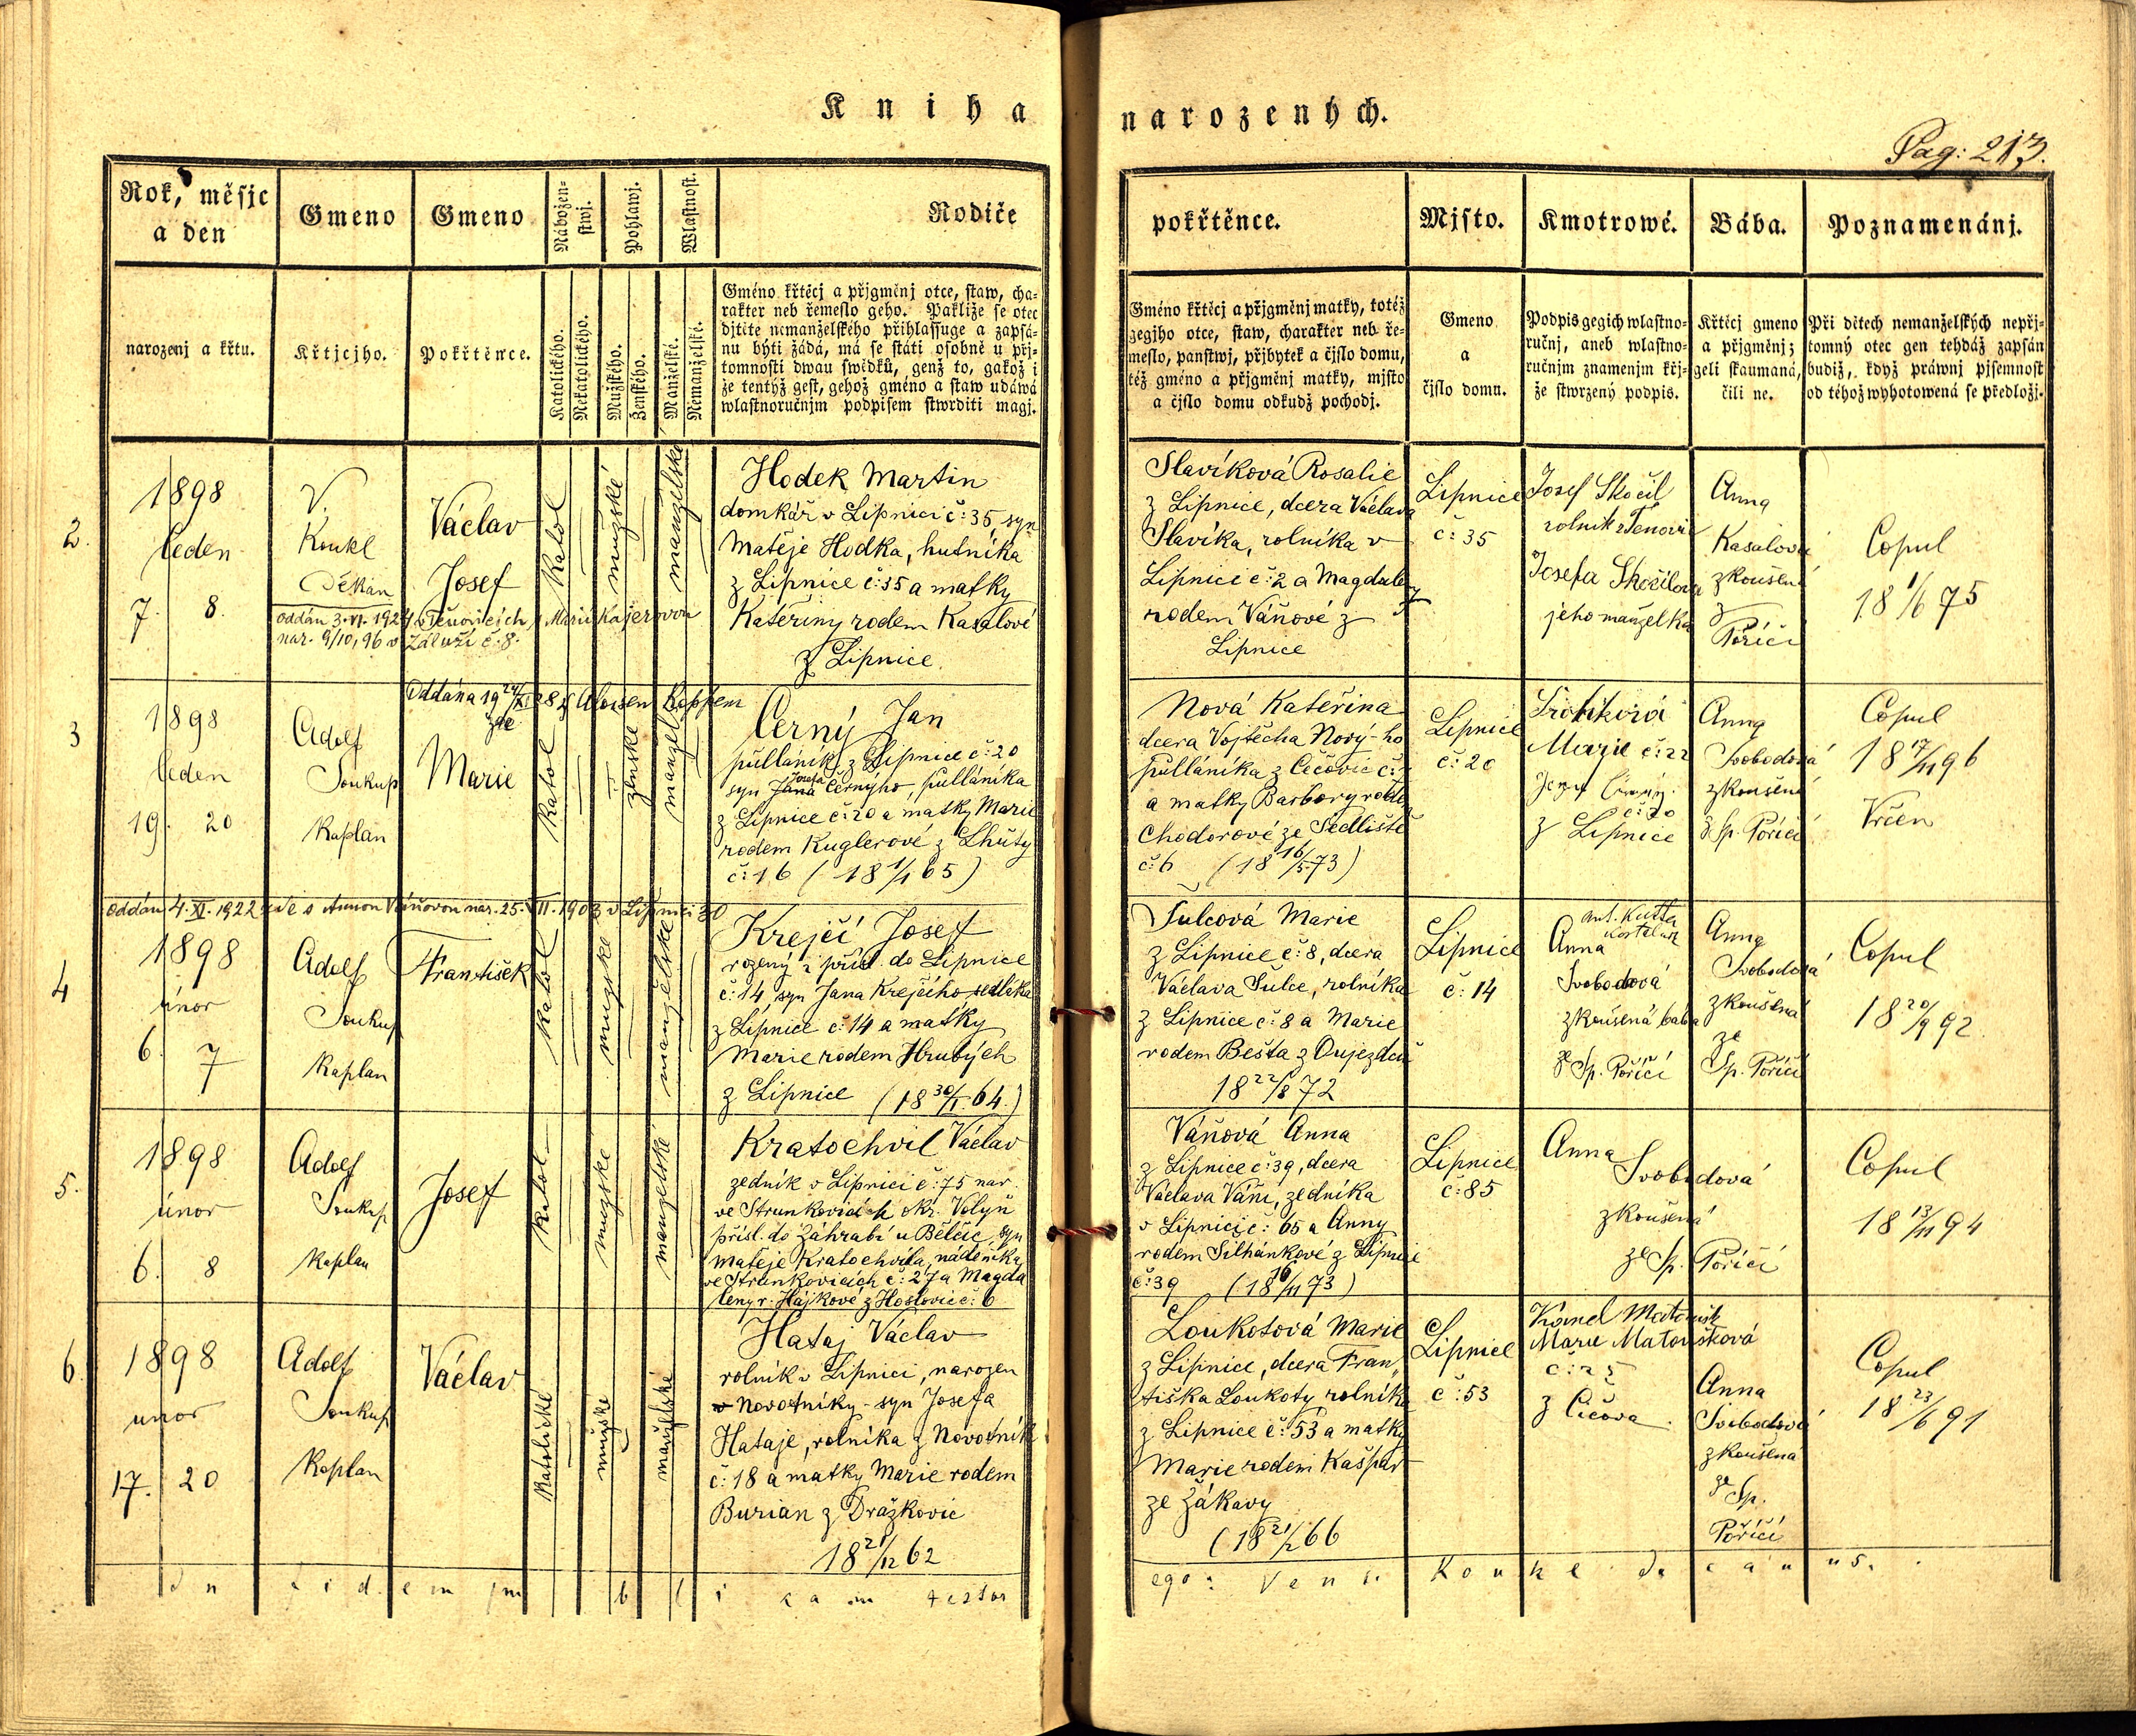 Kniha narozených.
Pag: 213.
Rok, měsjc
a den
Gmeno
Gmeno
Nábožen-
stwj.
Pohlawj.
Wlastnost.
Rodiče
pokřtěnce.
Mjsto.
Kmotrowé.
Bába.
Poznamenánj.
narozenj a křtu.
Křtjcjho.
Pokřtěnce.
Katolického.
Nekatolického.
Mužského.
Ženského.
Manželské.
Nemanželské.
Gméno křtěcj a přjgměnj otce, staw, cha-
rakter neb řemeslo geho. Pakliže se otec
djtěte nemanželského přihlassuge a zapsá-
nu býti žádá, má se státi osobně u přj-
tomnosti dwau swědků, genž to, gakož i
že tentýž gest, gehož gméno a staw udáwá
wlastnoručnjm podpisem stwrditi magj.
Gméno křtěcj a přjgměnj matky, totéž
gegjho otce, staw, charakter neb ře-
meslo, panstwj, přjbytek a čjslo domu,
též gméno a přjgměnj matky, mjsto
a čjslo domu odkudž pochodj.
Gmeno
a
čjslo domu.
Podpis gegich wlastno-
ručnj, aneb wlastno-
ručnjm znamenjm křj-
že stwrzený podpis.
Křtěcj gmeno
a přjgměnj;
geli skaumaná,
čili ne.
Při dětech nemanželských nepřj-
tomný otec gen tehdáž zapsán
budiž, když práwnj pjsemnost
od téhož wyhotowená se předložj.
2.
1898
leden
7. 8.
V.
Koukl
Děkan
Václav
Josef
Katol
mužské
manželské
oddán 3.VI.1924 v Těnovicích s Marií Kajerovou
nar. 9/10, 96 v Záluží č. 8.
Hodek Martin
domkář v Lipnici č: 35, syn
Matěje Hodka, hutníka
z Lipnice č: 35 a matky
Kateřiny rodem Kasalové
z Lipnice.
Slavíková Rosalie
z Lipnice, dcera Václava
Slavíka, rolníka v
Lipnici č: 2 a Magdaleny
rodem Váňové z
Lipnice
Lipnice
č: 35
Josef Skočil
rolník z Těnovic
Josefa Skočilova
jeho manželka
Anna
Kasalová
zkoušená
z
Poříčí
Copul
18 1/6 75
3
Oddána 19 24/XI 28 s Aloisem Beppem
zde
1898
leden
19. 20
Adolf
Soukup
Kaplan
Marie
Katol
ženské
manžel
Černý Jan
půlláník z Lipnice č: 20
syn Jana Josefa Černýho, půlláníka
z Lipnice č: 20 a matky Marie
rodem Kuglerové z Lhůty
č: 16 (18 1/1 65)
Nová Kateřina
dcera Vojtěcha Nový-ho
půlláníka z Čečovic č: 7
a matky Barbory rodem
Chodorové ze Sedliště
č: 6 (18 16/5 73)
Lipnice
č: 20
Marie č: 22
č: 20
z Lipnice
Anna
Svobodová
zkoušená
z Sp. Poříčí
Copul
18 17/11 96
Vrčen
4
oddán 4.XI.1922 zde s Annou Váňovou nar. 25.VII.1903 v Lipnici 30
1898
únor
6. 7
Adolf
Soukup
Kaplan
František
Katol
mužské
manželské
Krejčí Josef
rozený i přísl. do Lipnice
č: 14, syn Jana Krejčího, sedláka
z Lipnice č: 14 a matky
Marie rodem Hrubých
z Lipnice (18 30/1 64.)
Šulcová Marie
z Lipnice č: 8, dcera
Václava Šulce, rolníka
z Lipnice č: 8 a Marie
rodem Bešta z Oujezdce
18 22/8 72
Lipnice
č: 14
Anna
Svobodová
zkoušená bába
ze Sp. Poříčí
Anna
Svobodová
zkoušená
ze
Sp. Poříčí
Copul
18 20/9 92
5.
1898
únor
6. 8
Adolf
Soukup
Kaplan
Josef
Katol
mužské
manželské
Kratochvil Václav
zedník v Lipnici č: 75 nar.
ve Strunkovicích okr. Volyň
přísl. do Záhrabí u Bělčic, syn
Matěje Kratochvíla, nádeníka
ve Strunkovicích č: 27 a Magda
leny r. Hájkové z Hoslovic č: 6
Váňová Anna
z Lipnice č: 39, dcera
Václava Váni, zedníka
v Lipnici č: 65 a Anny
rodem Silhánkové z Lipnice
č: 39 (18 16/11 73)
Lipnice
č: 85
Anna
Svobodová
zkoušená
ze Sp. Poříčí
Copul
18 13/11 94
6.
1898
unor
17. 20
Adolf
Soukup
Kaplan
Václav
Katolické
mužské
manželské
Hataj Václav
rolník v Lipnici, narozen
v Novotníky - syn Josefa
Hataje, rolníka z Novotník
č: 18 a matky Marie rodem
Burian z Dražkovic
18 21/12 62
Loukotová Marie
z Lipnice, dcera Fran,
tiška Loukoty rolníka
z Lipnice č: 53 a matky
Marie rodem Kašpar
ze Žákavy
(18 21/2 66
Lipnice
č: 53
Karel Matoušk
Marie Matoušková
č: 25
z Čičova.
Anna
Svobodová
zkoušena
ze Sp.
Poříčí
Copul
18 23/6 91
In fidem publicam testor
ego: Venc. Koukl decanus.